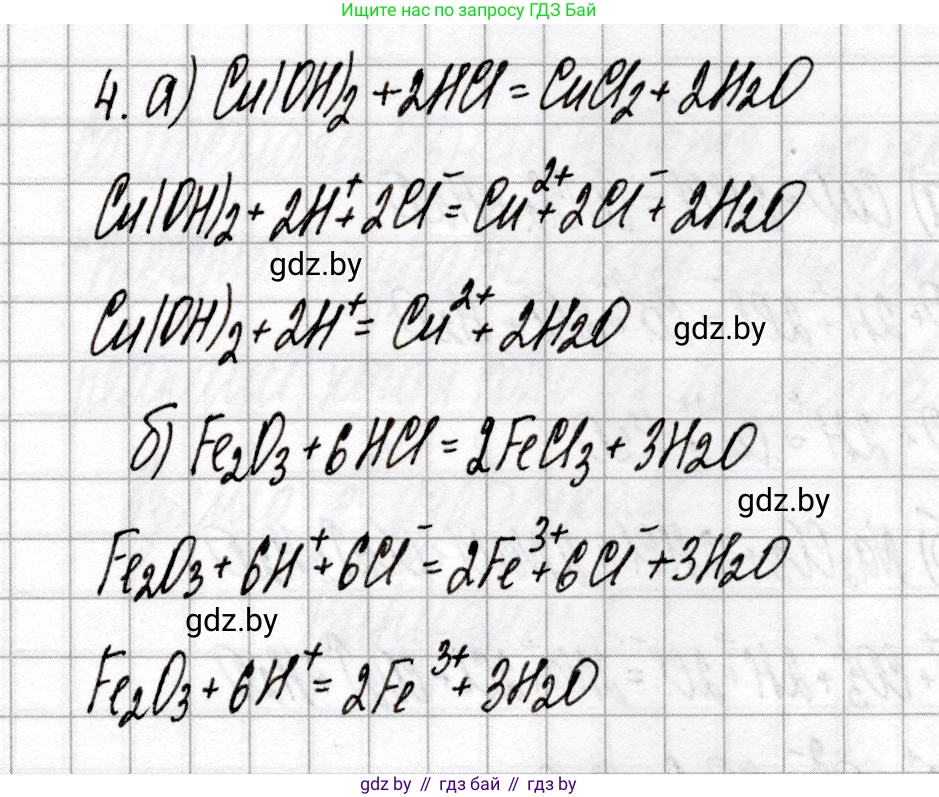 Ищите нас по запросу ГДЗ Бай
4. а) Cu(OH)₂ + 2HCl = CuCl₂ + 2H₂O
Cu(OH)₂ + 2H⁺ + 2Cl⁻ = Cu²⁺ + 2Cl⁻ + 2H₂O
gdz.by
Cu(OH)₂ + 2H⁺ = Cu²⁺ + 2H₂O
gdz.by
б) Fe₂O₃ + 6HCl = 2FeCl₃ + 3H₂O
gdz.by
Fe₂O₃ + 6H⁺ + 6Cl⁻ = 2Fe³⁺ + 6Cl⁻ + 3H₂O
gdz.by
Fe₂O₃ + 6H⁺ = 2Fe³⁺ + 3H₂O
gdz by // гдз бай // gdz by